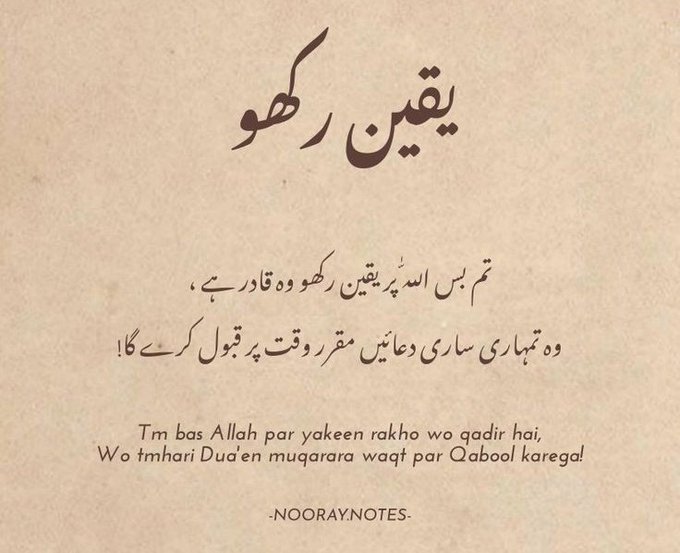 یقین رکھو
تم بس اللہ پر یقین رکھو وہ قادر ہے ،
وہ تمہاری ساری دعائیں مقرر وقت پر قبول کرے گا!
Tm bas Allah par yakeen rakho wo qadir hai,
Wo tmhari Dua'en muqarara waqt par Qabool karega!
-NOORAY.NOTES-